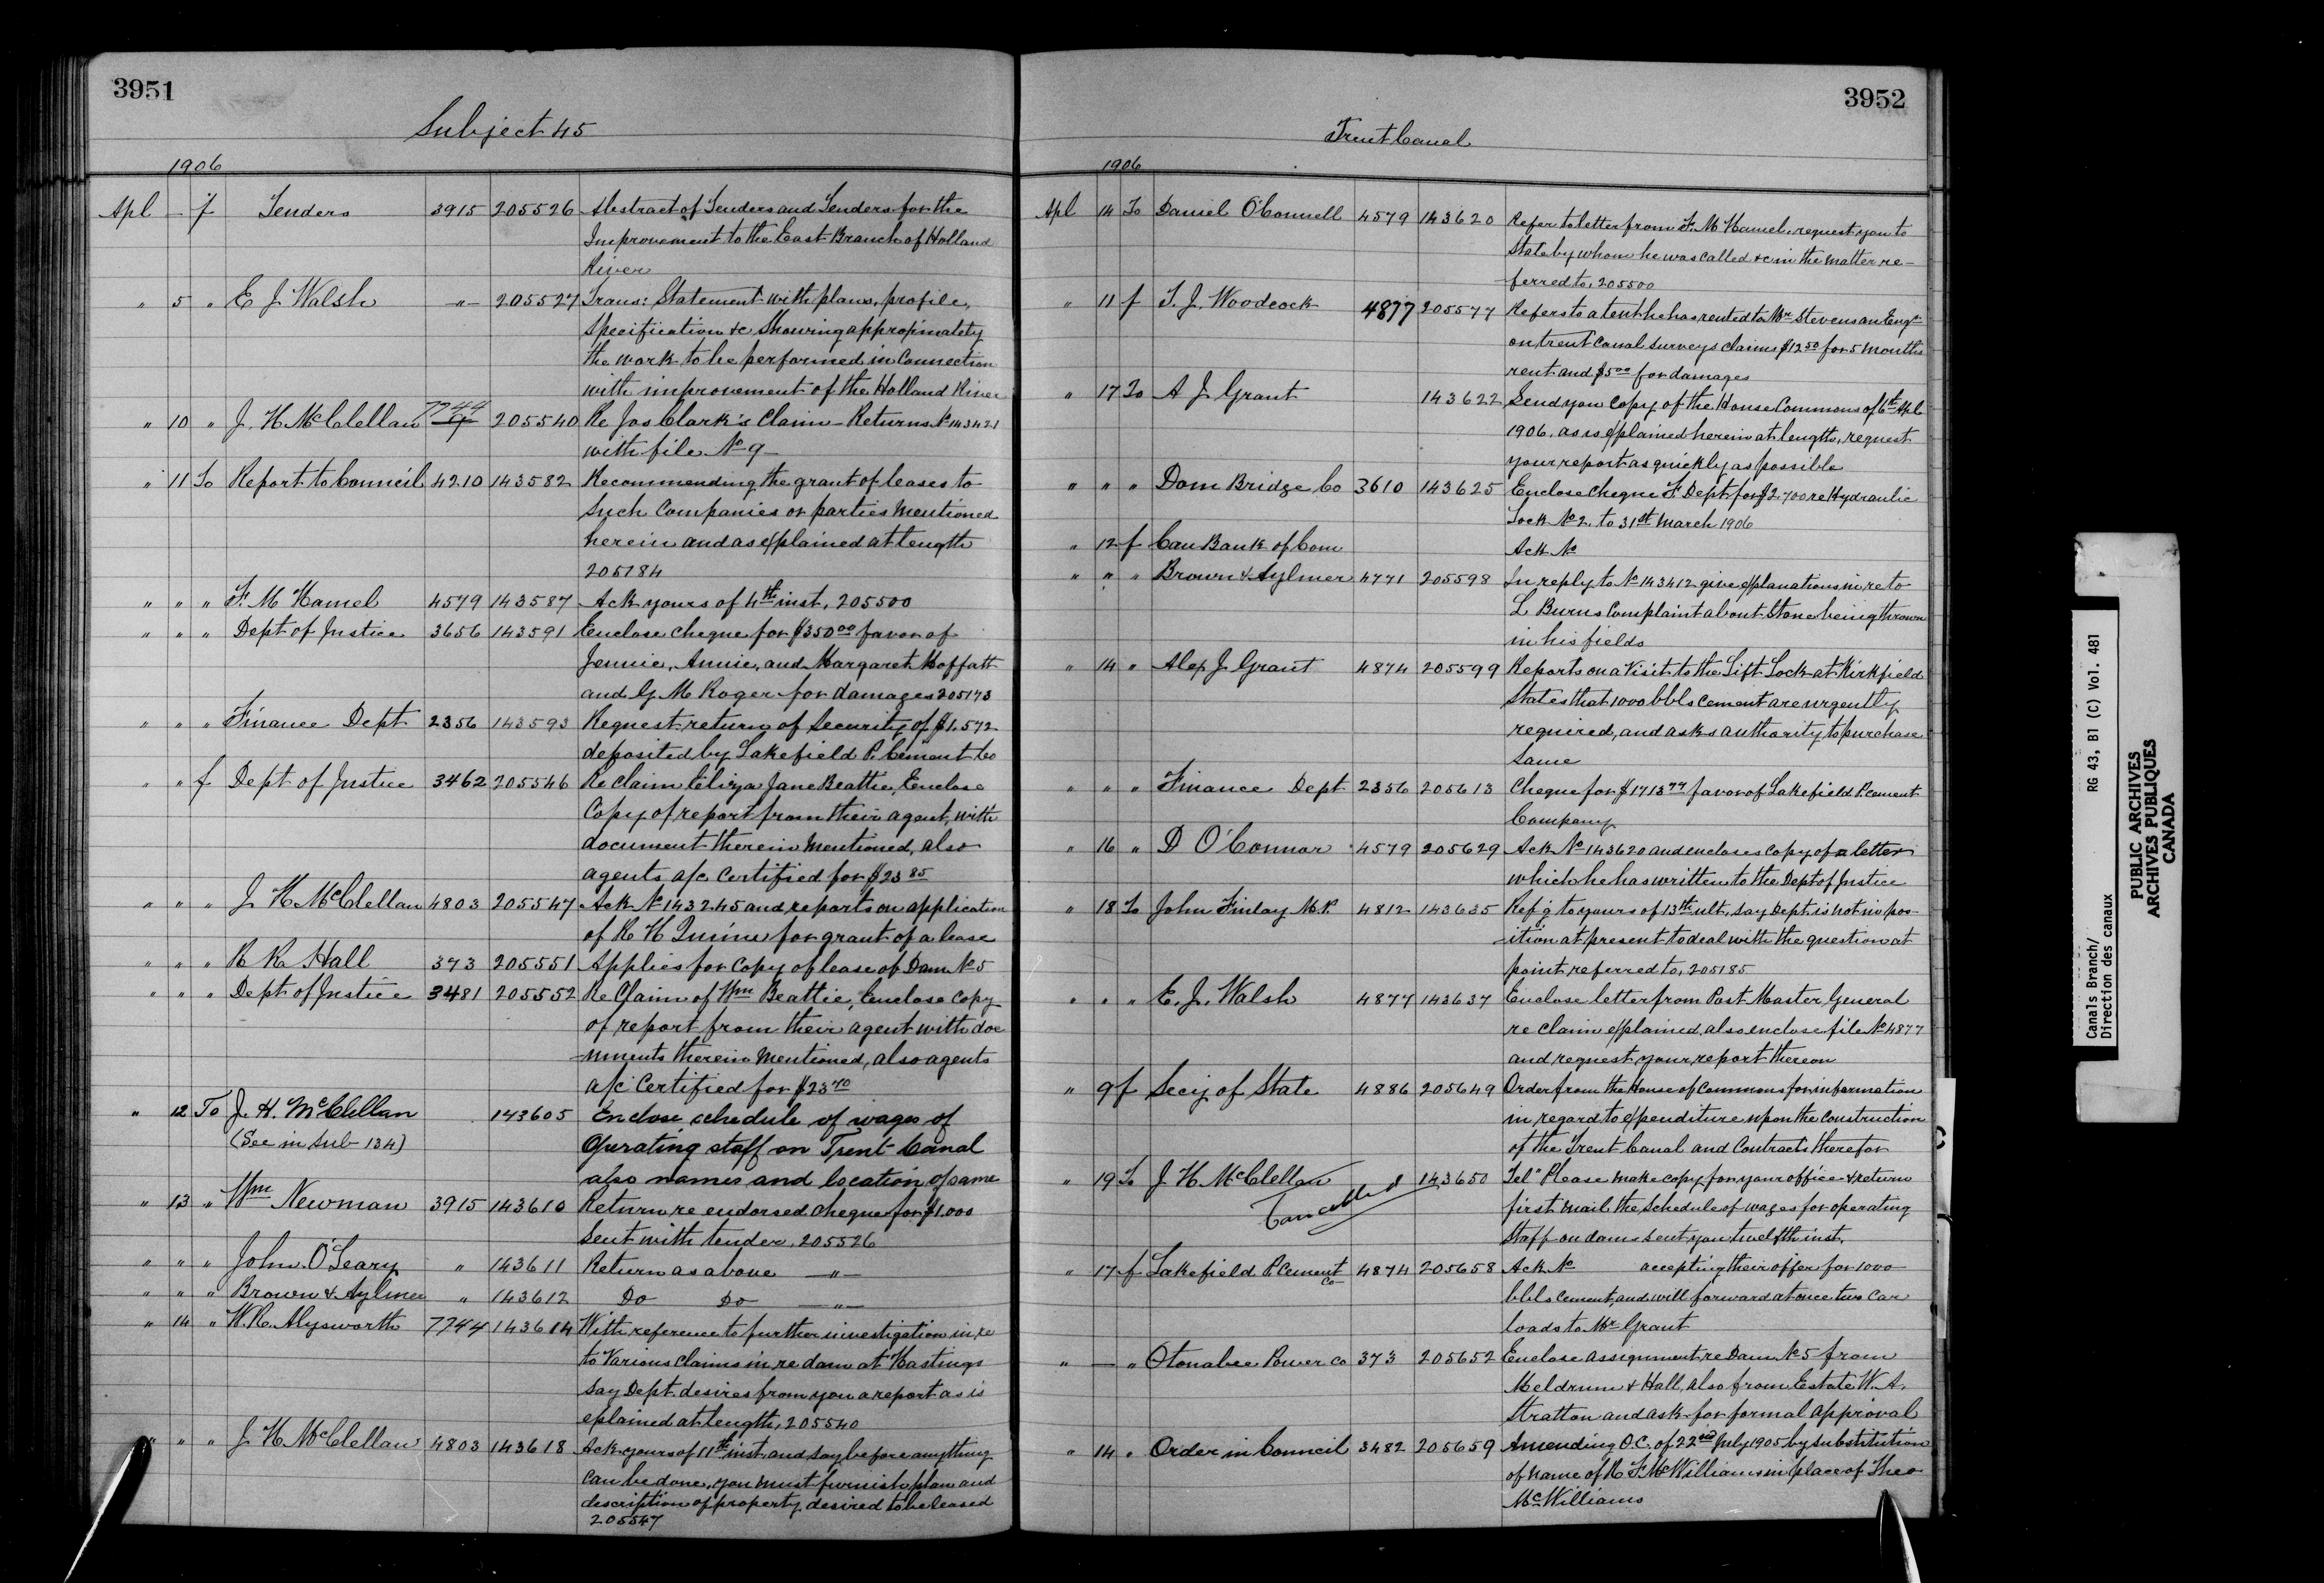 3951
Subject 45
1906
Apl — f Tenders 3915 205526 Abstract of Tenders and Tenders for the
Improvement to the East Branch of Holland
River
" 5 " E J Walsh —"— 205527 Trans: Statement with plans, profile,
Specification &c Showing appropimately
the work to be performed in Connection
with improvement of the Holland River
" 10 " J. H. McClellan 7744 9 205540 Re Jas Clark's Claim – Returns No 143421
with file No 9 –
" 11 To Report to Council 4210 143582 Recommending the grant of leases to
Such Companies or parties Mentioned
herein and as explained at length
205184
" " " F. M Hamel 4579 143587 Ack yours of 4th inst, 205500
" " " Dept of Justice 3656 143591 Enclose cheque for $350 00 favor of
Jennie, Annie, and Margaret Moffatt
and G. M Roger for damages 205173
" " " Finance Dept 2356 143593 Request return of Security of $1.572
deposited by Lakefield P. Cement Co
" " f Dept of Justice 3462 205546 Re Claim Eliza Jane Beattie, Enclose
Copy of report from their agent, with
document therein Mentioned, also
agents a/c Certified for $23 85
" " " J H McClellan 4803 205547 Ack No 143245 and reports on application
of R H for grant of a lease
" " " R R Hall 373 205551 Applies for Copy of lease of Dam No 5
" " " Dept of Justice 3481 205552 Re Claim of Wm Beattie, Enclose Copy
of report from their agent with doc
–uments therein Mentioned, also agents
a/c Certified for $23 70
" 12 To J. H. McClellan 143605 Enclose schedule of wages of
(See in Sub 134) Operating staff on Trent Canal
also names and location of same
" 13 " Wm Newman 3915 143610 Return re endorsed Cheque for $1.000
Sent with tender, 205526
" " " John O'Leary " 143611 Return as above —"—
" " " Brown & Aylmer " 143612 Do Do —"—
" 14 " W. R. Alysworth 7744 143614 With reference to further investigation in re
to Various Claims in re dam at Hastings
Say Dept. desires from you a report as is
eplained at length, 205540
" " " J H McClellan 4803 143618 Ack yours of 11th inst, and say before anything
Can be done, you must furnish plan and
description of property desired to be leased
205547
3952
Trent Canal
1906
Apl 14 To Daniel O'Connell 4579 143620 Refer to letter from F. M Hamel, request you to
State by whom he was called &c in the matter re–
–ferred to, 205500
" 11 f T. J. Woodcock 4877 205577 Refers to a tent he has rented to Mr Stevenson Engr
on trent Canal Surveys Claims $12 50 for 5 Months
rent and $5 00 for damages
" 17 To A J Grant 143622 Send you Copy of the House Commons of 6th Apl
1906, as is explained herein at length, request
your report as quickly as possible
" " " Dom Bridge Co 3610 143625 Enclose Cheque F. Dept. for $2.700 re Hydraulic
Lock No 2, to 31st March 1906
" 12 f Can Bank of Com Ack No
" " " Brown & Aylmer 4771 205598 In reply to No 143412 give explanations in re to
L Burns Complaint about Stone being thrown
in his fields
" 14 " Alex J Grant 4874 205599 Reports on a Visit to the Lift Lock at Kirkfield
States that 1000 bbls Cement are urgently
required, and asks authority to purchase
Same
" " " Finance Dept 2356 205613 Cheque for $1713 77 favor of Lakefield P. Cement
Company
" 16 " D O'Connor 4579 205629 Ack No 143620 and encloses Copy of a letter
which he has written to the Dept of Justice
" 18 To John Finlay M.P. 4812 143635 Ref'g to yours of 13th ult, Say Dept. is not in pos–
–ition at present to deal with the question at
point referred to, 205185
" " " E. J. Walsh 4877 143637 Enclose letter from Post Master General
re Claim explained, also enclose file No 4877
and request your report thereon
" 9 f Secy of State 4886 205649 Order from the House of Commons for information
in regard to expenditure upon the Construction
of the Trent Canal and Contracts therefor
" 19 To J H McClellan 143650 Tel" Please make copy for your office & return
Cancelled first mail the Schedule of wages for operating
Staff on dams Sent you twelfth inst,
" 17 f Lakefield P. Cement Co 4874 205658 Ack No accepting their offer for 1000
bbls Cement, and will forward at once two car
loads to Mr Grant
" — " Otonabee Power Co 373 205652 Enclose assignment re Dam No 5 from
Meldrum & Hall, also from Estate W. A.
Stratton and ask for formal approval
" 14 " Order in Council 3482 205659 Amending O.C. of 22nd July 1905 by Substitution
of name of R F. McWilliams in place of Theo
McWilliams
Canals Branch/ RG 43, B1 (C) Vol. 481
Direction des canaux
PUBLIC ARCHIVES
ARCHIVES PUBLIQUES
CANADA